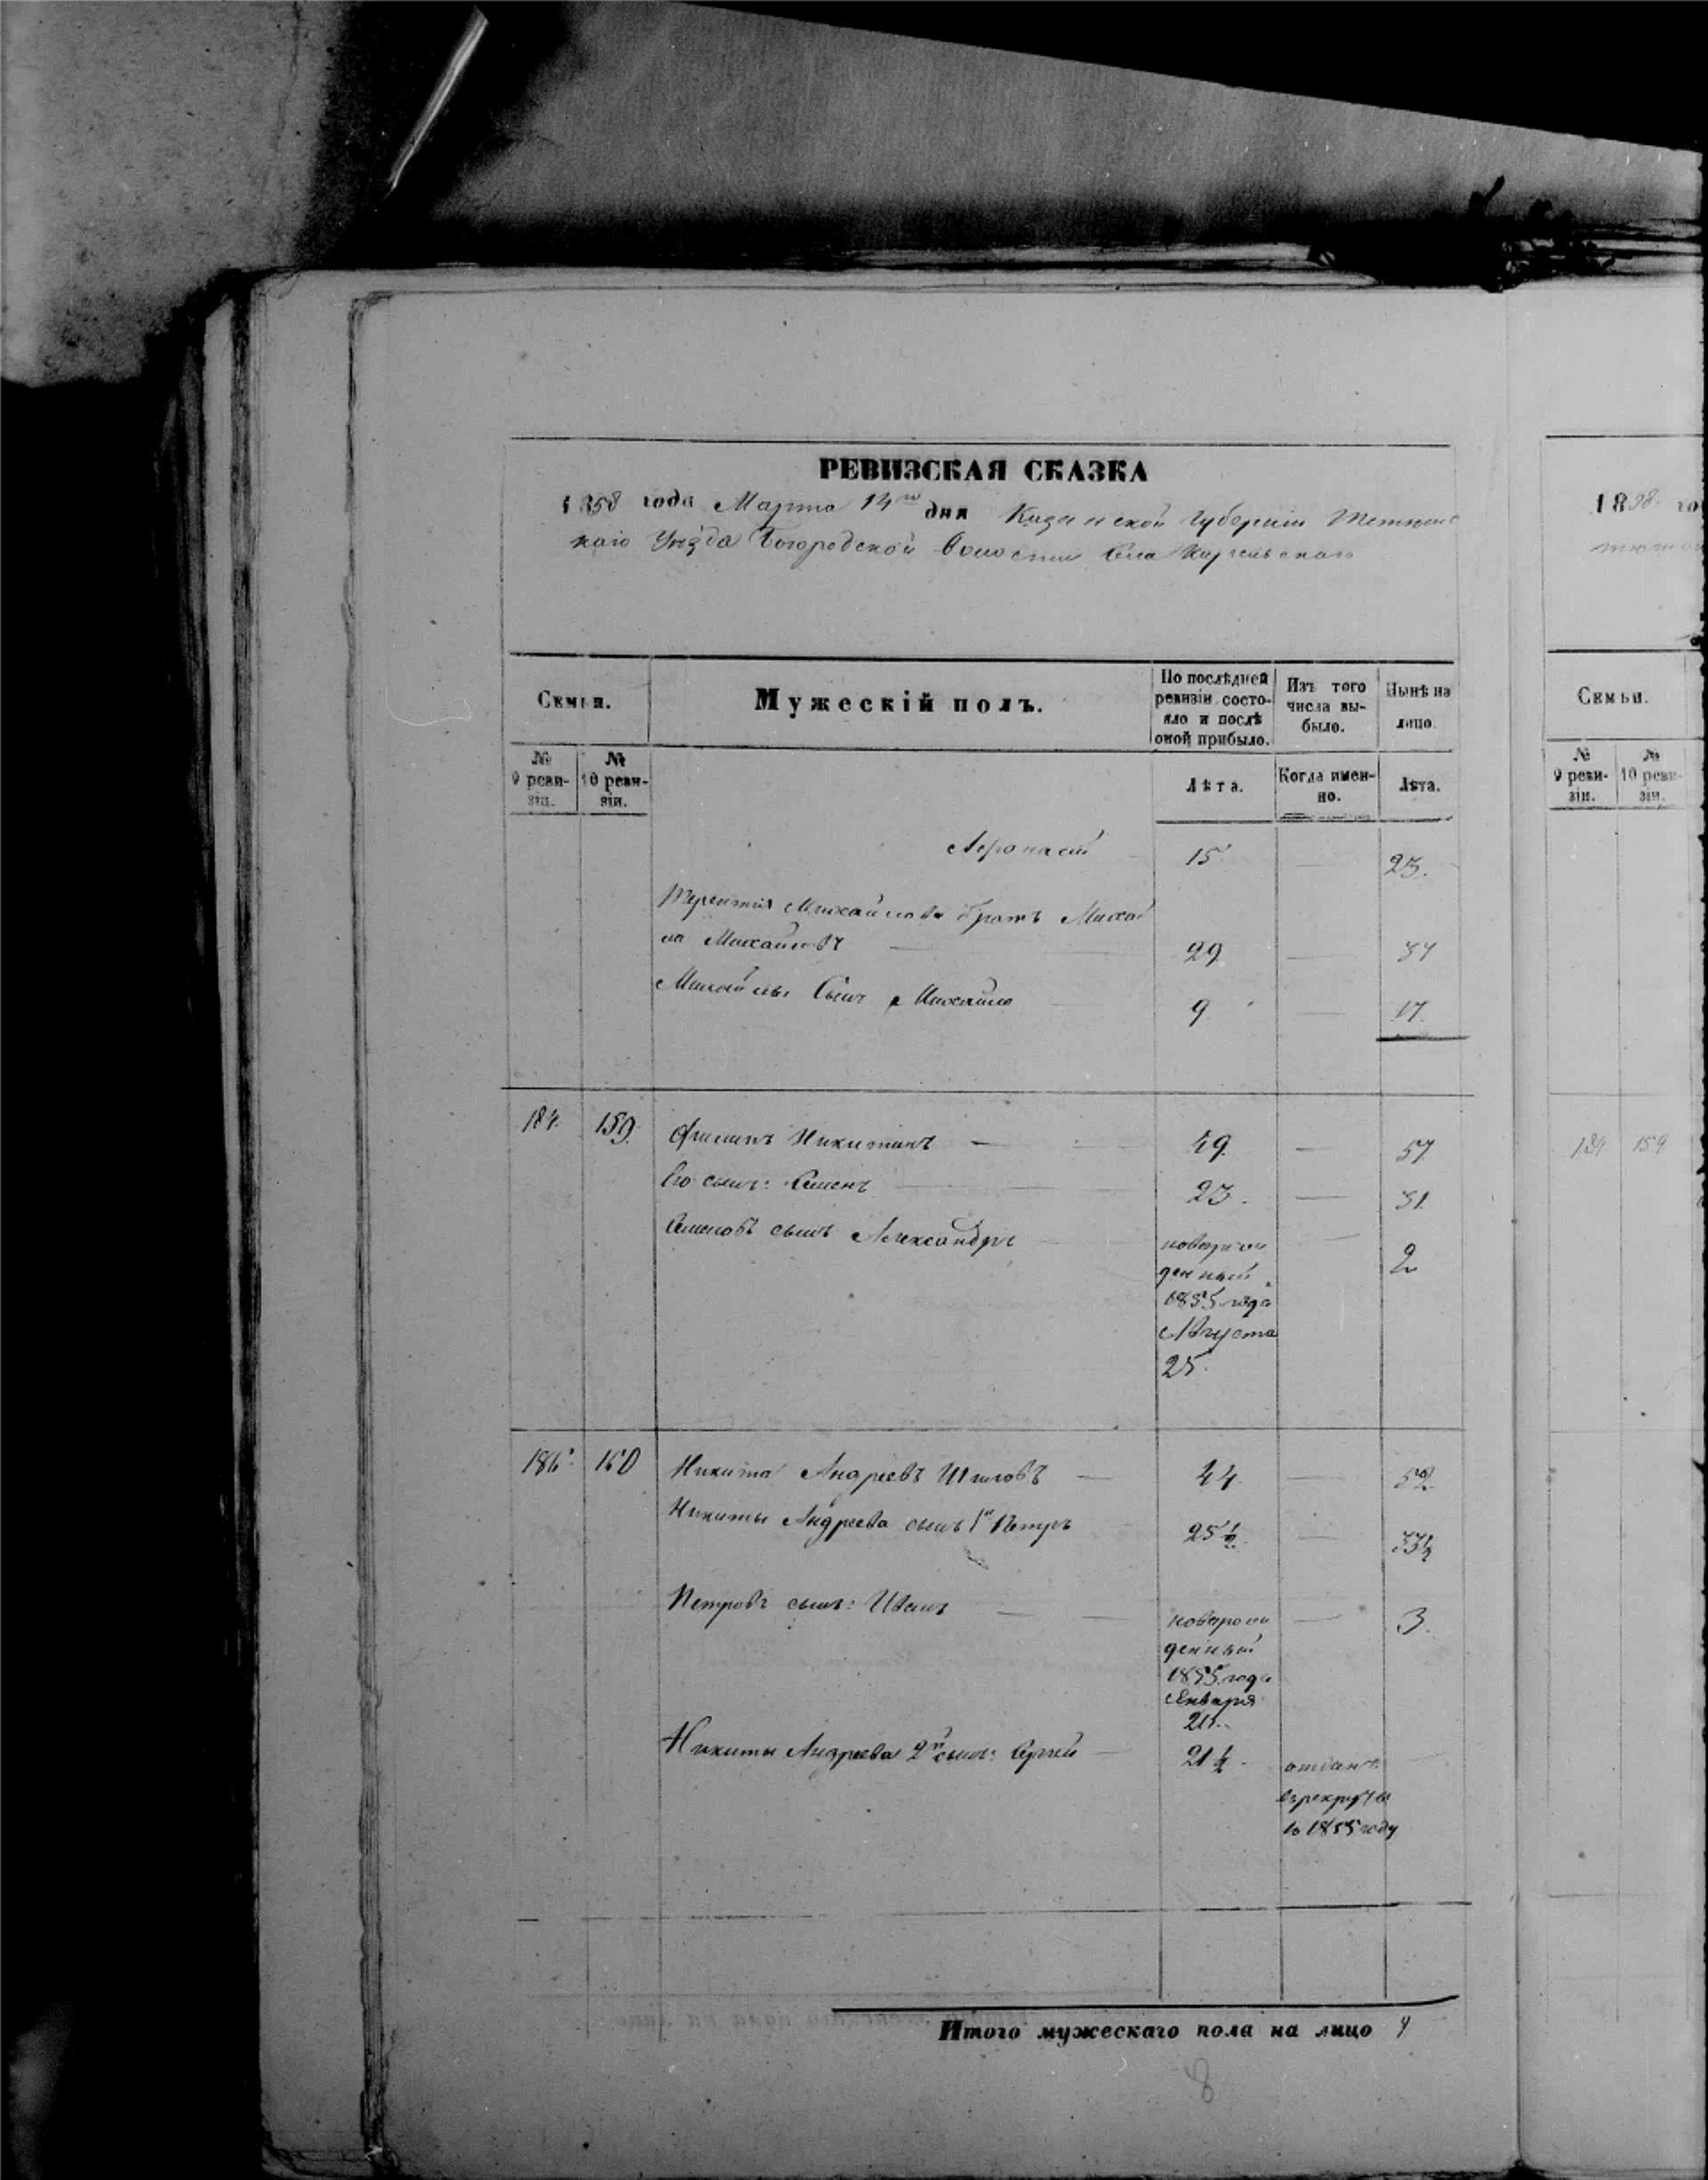 РЕВИЗСКАЯ СКАЗКА
1858 года Марта 14го дня Казанской Губерніи Тетюшс
каго Уѣзда Богородской Волости Села
Семьи.
Мужескій полъ.
По послѣдней ревизіи состояло и послѣ оной прибыло.
Изъ того числа выбыло.
Нынѣ на лицо.
№ 9 ревизіи.
№ 10 ревизіи.
Лѣта.
Когда именно.
Лѣта.
Афонасій 15 — 23.
Терентія Михайлова братъ Михай
ла Михайловъ — 29 —
Михайлы Сынъ Михайло 9 — 17.
184. 159. Филипъ Никитинъ — 49. — 57.
Его сынъ: Семенъ 23. — 31.
Семеновъ сынъ Александръ
новорож
денный
1855 года
Августа
25.
— 2
186. 160 Никита Андреевъ Шиловъ — 44. — 52
Никиты Андреева сынъ 1й Петръ 25 1/2. — 33 1/2
Петровъ сынъ: Иванъ —
новорож
денный
1855 года
Января
— 3.
Никиты Андреева 2й сынъ: Сергѣй — 21 1/2.
отданъ
въ рекруты
въ 1855 году
Итого мужескаго пола на лицо
8
1858 го
Семьи.
№ 9 ревизіи.
№ 10 ревизіи.
184 159